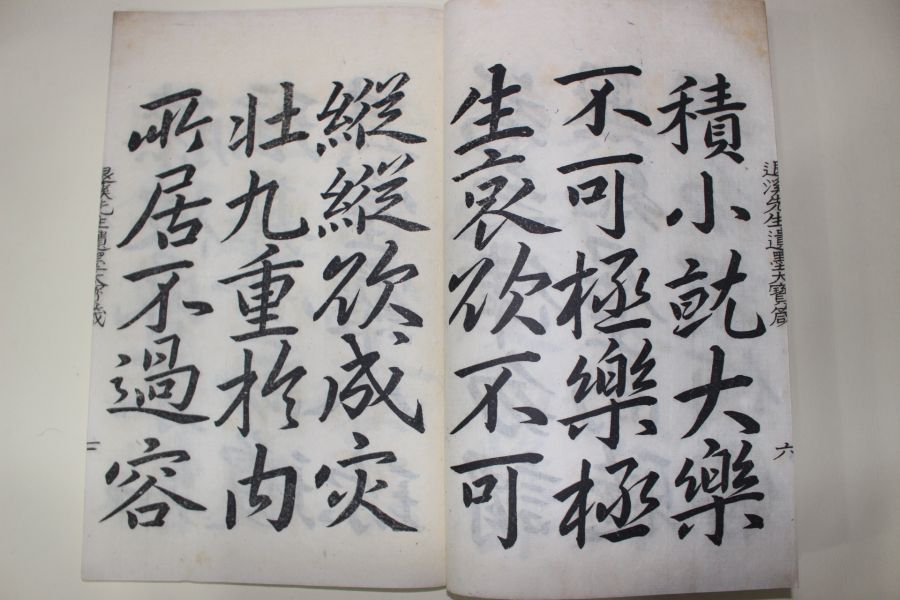 退溪先生遺墨大寶箴
六
積小就大樂
不可極樂極
生哀欲不可
縱縱欲成灾
壯九重於内
所居不過容
退溪先生遺墨大寶箴